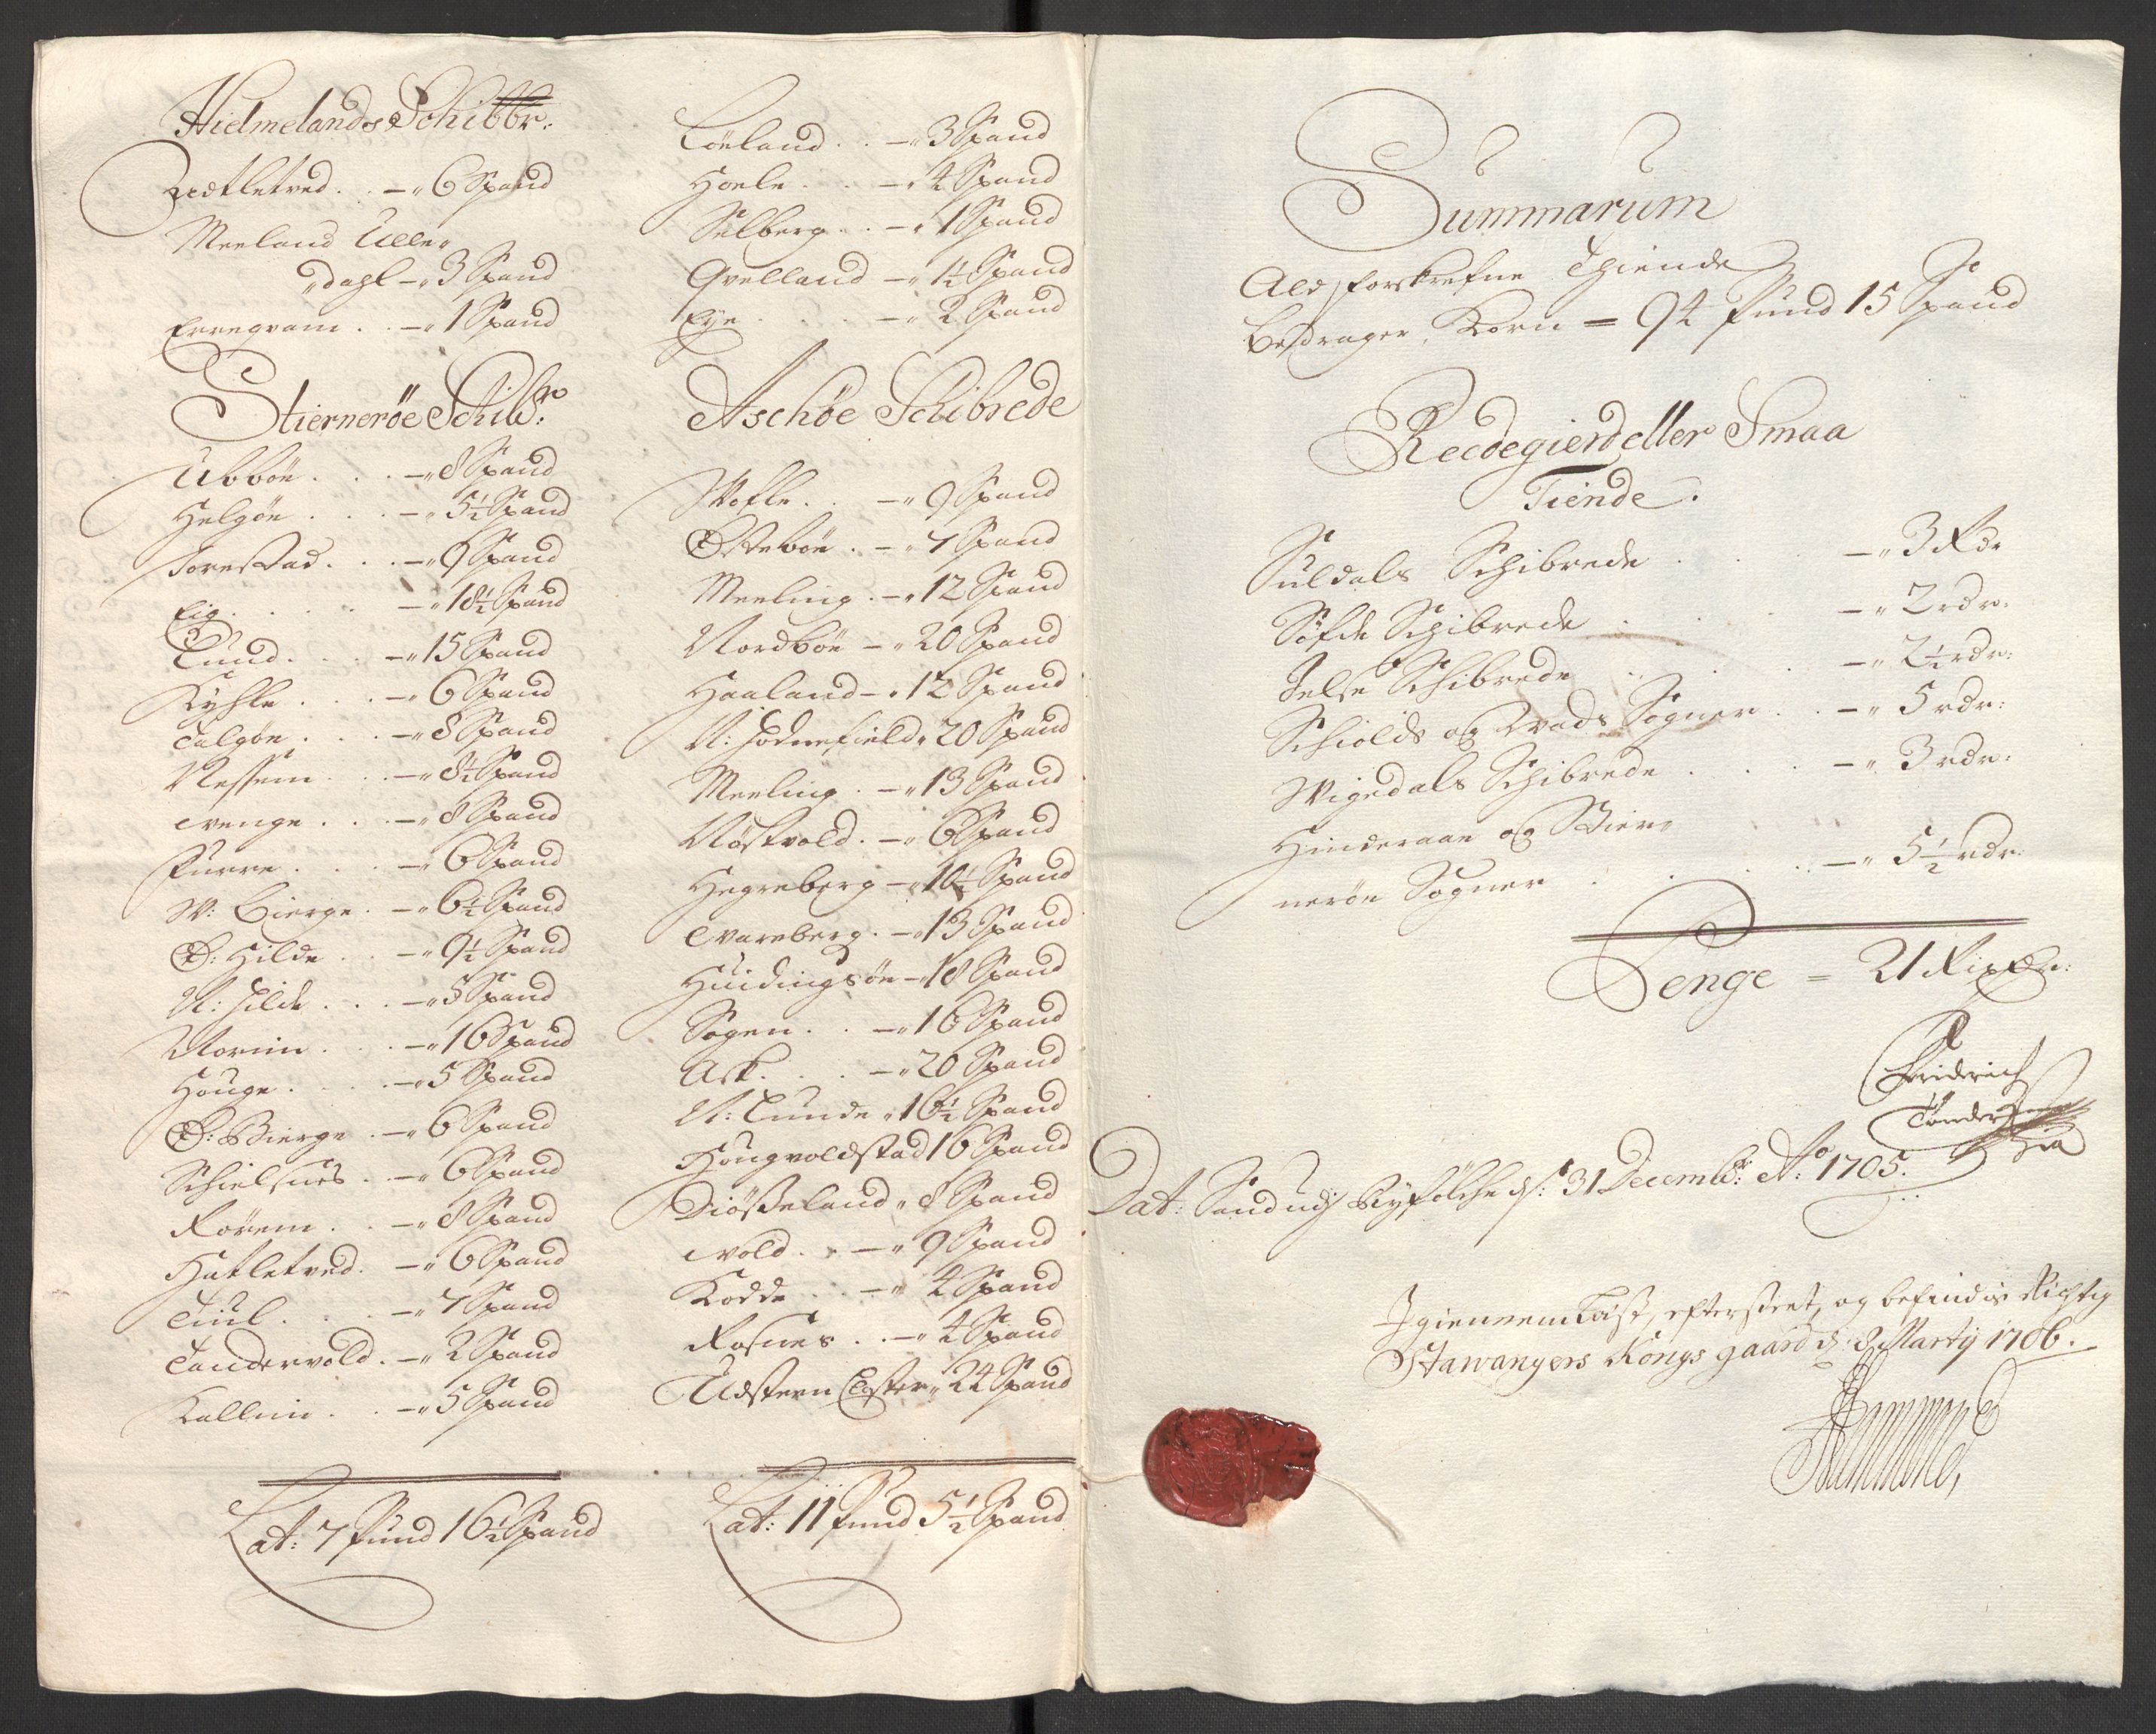 Hielmelands Schibbr:
Hætletved . . —„ 6 Spand
Meeland Ulle„
„dahl —„ 3 Spand
Erregrani . . —„ 1 Spand
Stiernerøe Schibr:
Ubbøe . . . —„ 8 Spand
Helgøe . . . —„ 5½ Spand
Forestad . . . —„ 9 Spand
Eig . . . . —„ 18½ Spand
Lund . . . —„ 15 Spand
Kyhle . . . —„ 6 Spand
Talgøe . . . —„ 8 Spand
Nessem . . . —„ 8½ Spand
Wenge . . . —„ 8 Spand
Furre . . . —„ 6 Spand
W: Bierge . —„ 6½ Spand
Ø: Hilde . . —„ 9½ Spand
N: Hilde . . . —„ 5 Spand
Norim . . . —„ 16 Spand
Houge . . . . —„ 5 Spand
Ø: Bierge . —„ 6 Spand
Schielsnes . . —„ 6 Spand
Rørem . . . —„ 8 Spand
Hatletved . —„ 6 Spand
Tiul . . . —„ 7 Spand
Tandervold . —„ 2 Spand
Kallem . . . —„ 5 Spand
Lat: 7 Pund 16½ Spand
Løeland . . —„ 3 Spand
Hoele . . . —„ 4 Spand
Selberg . . —„ 1 Spand
Qvelland —„ 1½ Spand
Eye . . . . —„ 2 Spand
Aschøe Schibrede
Wofle . . —„ 9 Spand
Østebøe . —„ 7 Spand
Meeling . —„ 12 Spand
Nordbøe —„ 20 Spand
Haaland —„ 12 Spand
N: Hodnefield „ 20 Spand
Meeling . —„ 13 Spand
Nøstvold . —„ 6 Spand
Hegreberg —„ 10½ Spand
Wareberg . —„ 13 Spand
Huidingsøe —„ 18 Spand
Sogen . . —„ 16 Spand
Ask . . . —„ 20 Spand
N: Lunde „ 16½ Spand
Hougvoldstad 16 Spand
Diøsseland „ 8 Spand
Wold . . —„ 9 Spand
Kodde . . —„ 4 Spand
Rosnes . . —„ 4 Spand
Udsteen Closter „ 24 Spand
Lat: 11 Pund 5½ Spand
Summarum
Ald forskrefne Thiende
bedrager, Korn = 94 Pund 15 Spand
Reedegierd eller Smaa
Tiende.
Suldals Schibrede . . —„ 3 Rdr
Søfde Schibrede . . —„ 2 rdr.
Jelse Schibrede . . . —„ 2½ rdr:
Schiolds og Wads Sogner . . —„ 5 rdr:
Wigedals Schibrede . . . —„ 3 rdr.
Hinderaae og Stier„
nerøe Sogner . . . . —„ 5½ rdr.
Penge = 21 Rixdlr:
Friderich
Tønder
Dat: Sand udj Ryfølche d: 31 Decembr: Ao: 1705.
Igiennemlæst, efterseet, og befindis Richtig
Stawangers Kongs gaard d: 8 Martij 1706.
Hammond